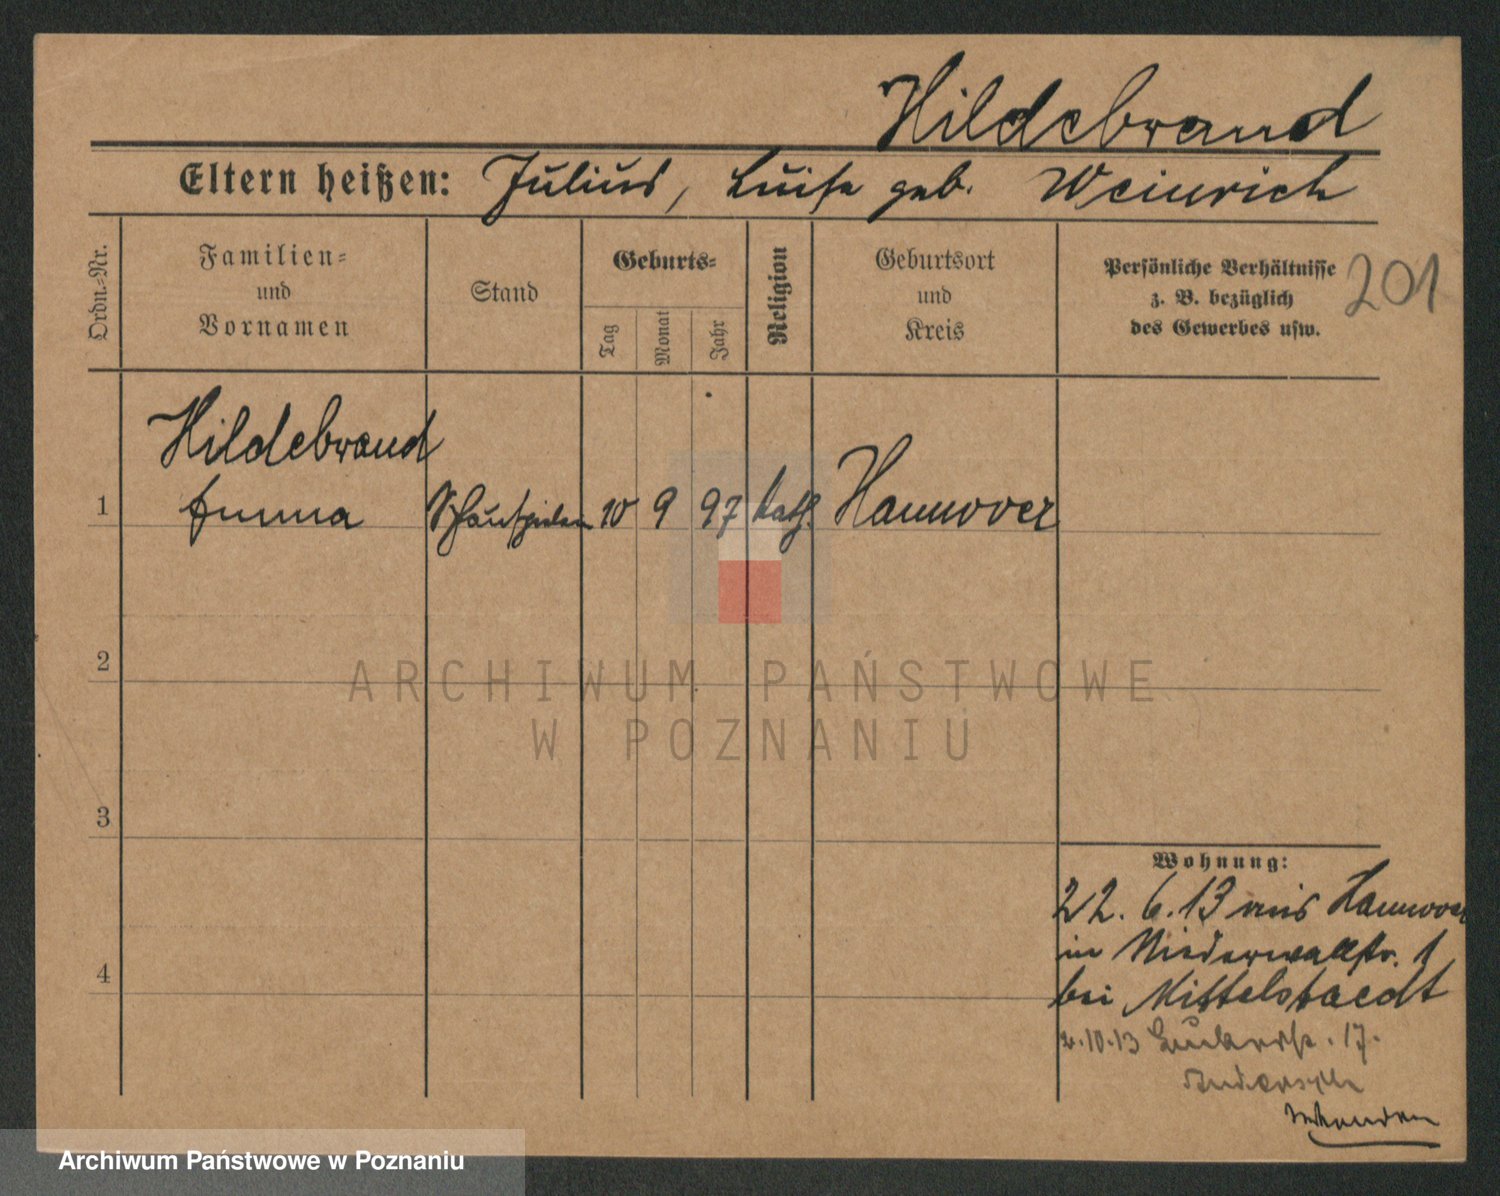 Hildebrand
Eltern heißen: Julius, Luise geb. Weinrich
Ordn.-Nr.
Familien-
und
Vornamen
Stand
Geburts-
Tag
Monat
Jahr
Religion
Geburtsort
und
Kreis
Persönliche Verhältnisse
z. B. bezüglich
des Gewerbes usw.
201
Hildebrand
1 Emma Schauspielerin 10 9 97 kath. Hannover
2
3
4
Wohnung:
22. 6. 13 aus Hannover
in Niederwallstr. 1
bei Mittelstaedt
2.10.13 17.
ARCHIWUM PAŃSTWOWE
W POZNANIU
Archiwum Państwowe w Poznaniu